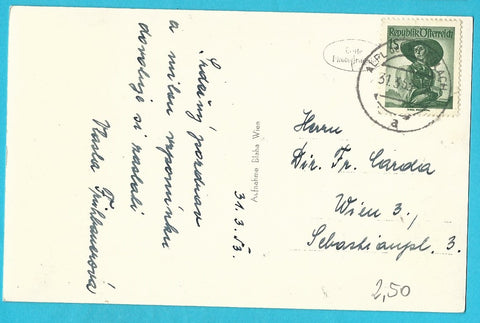 Srdečný pozdrav
a milou vzpomínku
dovoluje si zaslati
Vlasta Frühbauerová
31.3.53.
Aufnahme Blaha Wien
Echte
Republik Österreich
31.3.5
a
Herrn
Dir. Fr. Čarda
Wien 3.,
Sebastianpl. 3.
2,50